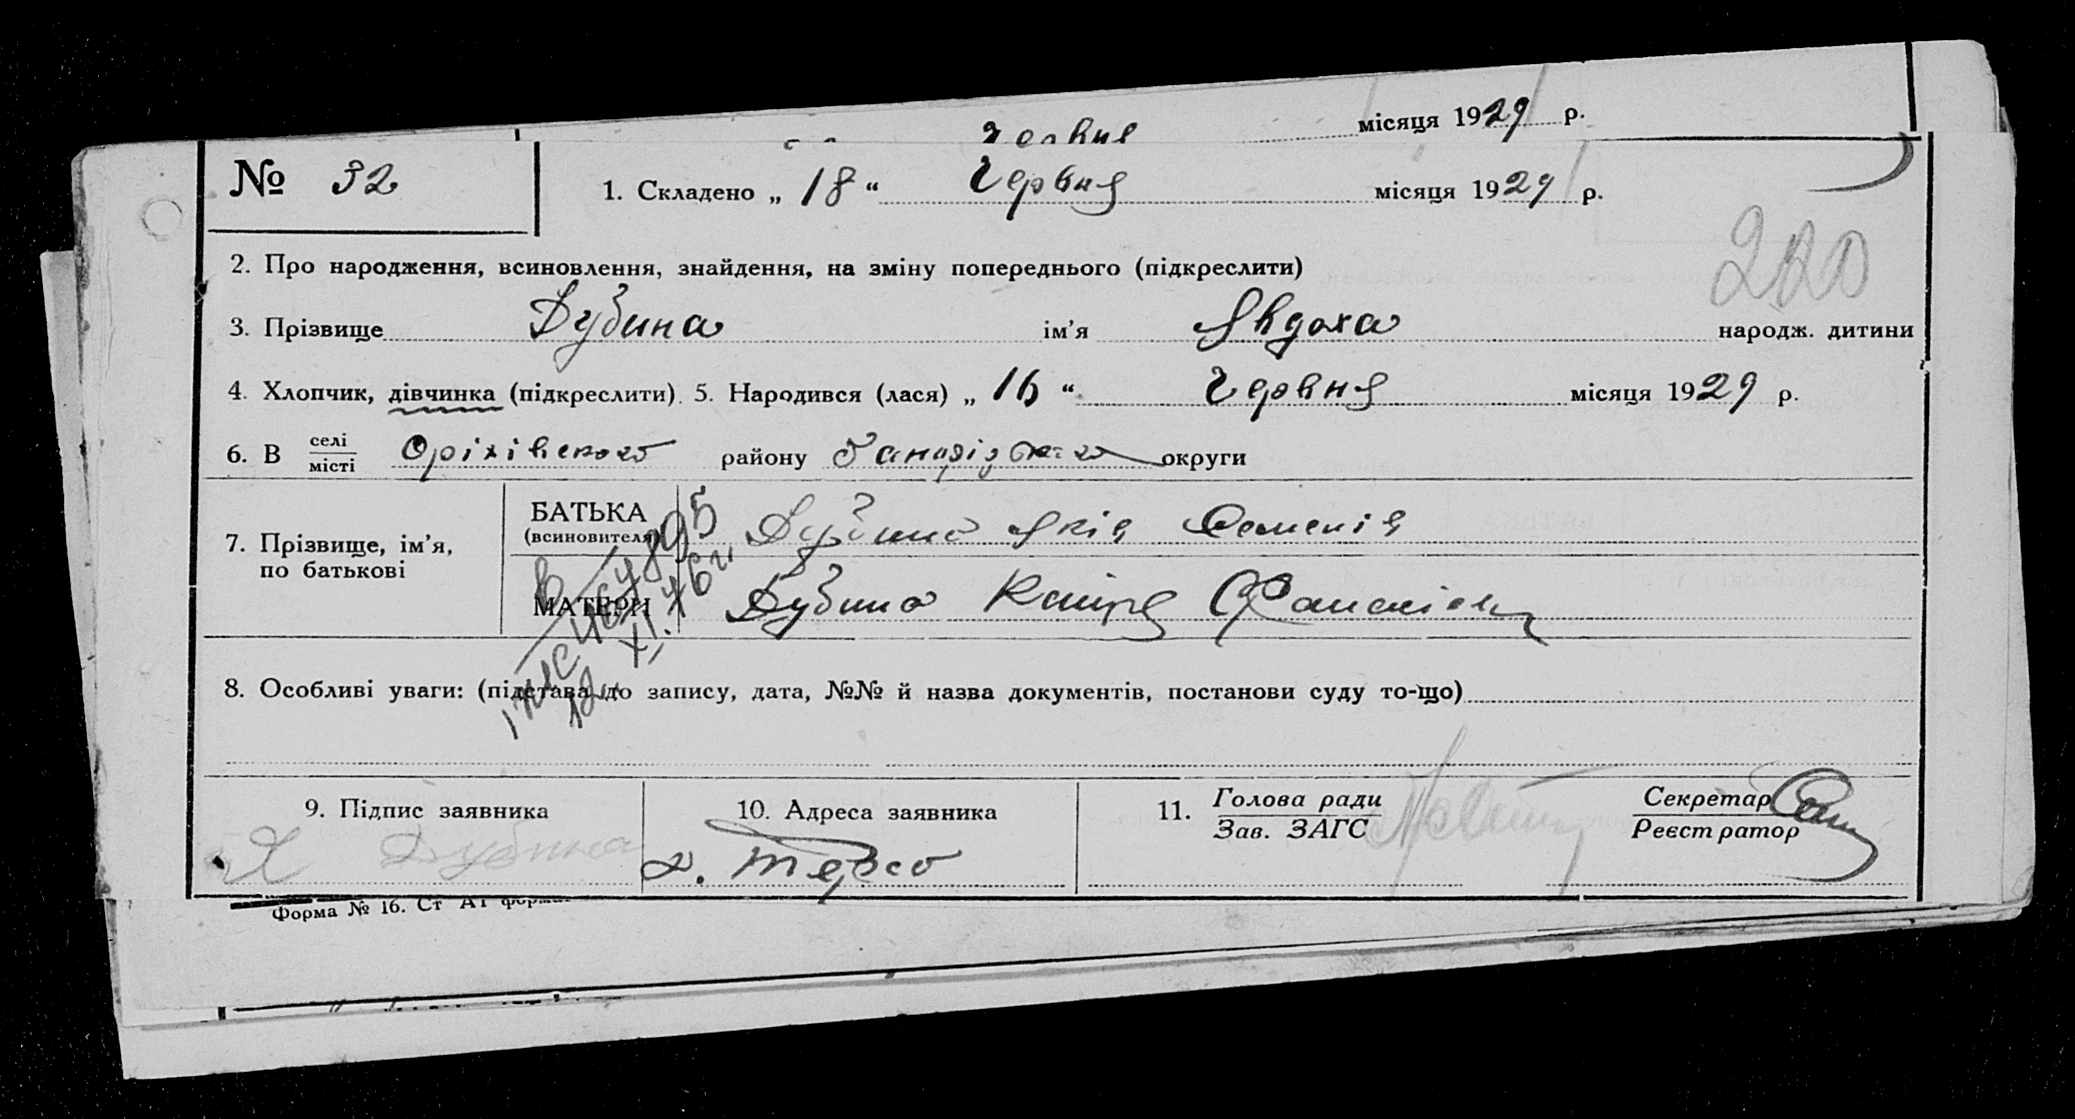 місяця 1929 р.
№ 32
1. Складено „ 18 “ Червня місяця 1929 р.
220
2. Про народження, всиновлення, знайдення, на зміну попереднього (підкреслити)
3. Прізвище Дубина ім’я Явдоха народж. дитини
4. Хлопчик, дівчинка (підкреслити). 5. Народився (лася) „ 16 “ Червня місяця 1929 р.
6. В селі місті Оріхівского району округи
7. Прізвище, ім’я, по батькові
БАТЬКА (всиновителя) Дубина Яків Семенів
МАТЕРИ Дубина
8. Особливі уваги: (підстава до запису, дата, №№ й назва документів, постанови суду то-що)
9. Підпис заявника
Дубина
10. Адреса заявника
11. Голова ради
Зав. ЗАГС
Секретар
Реєстратор
Форма № 16. Ст